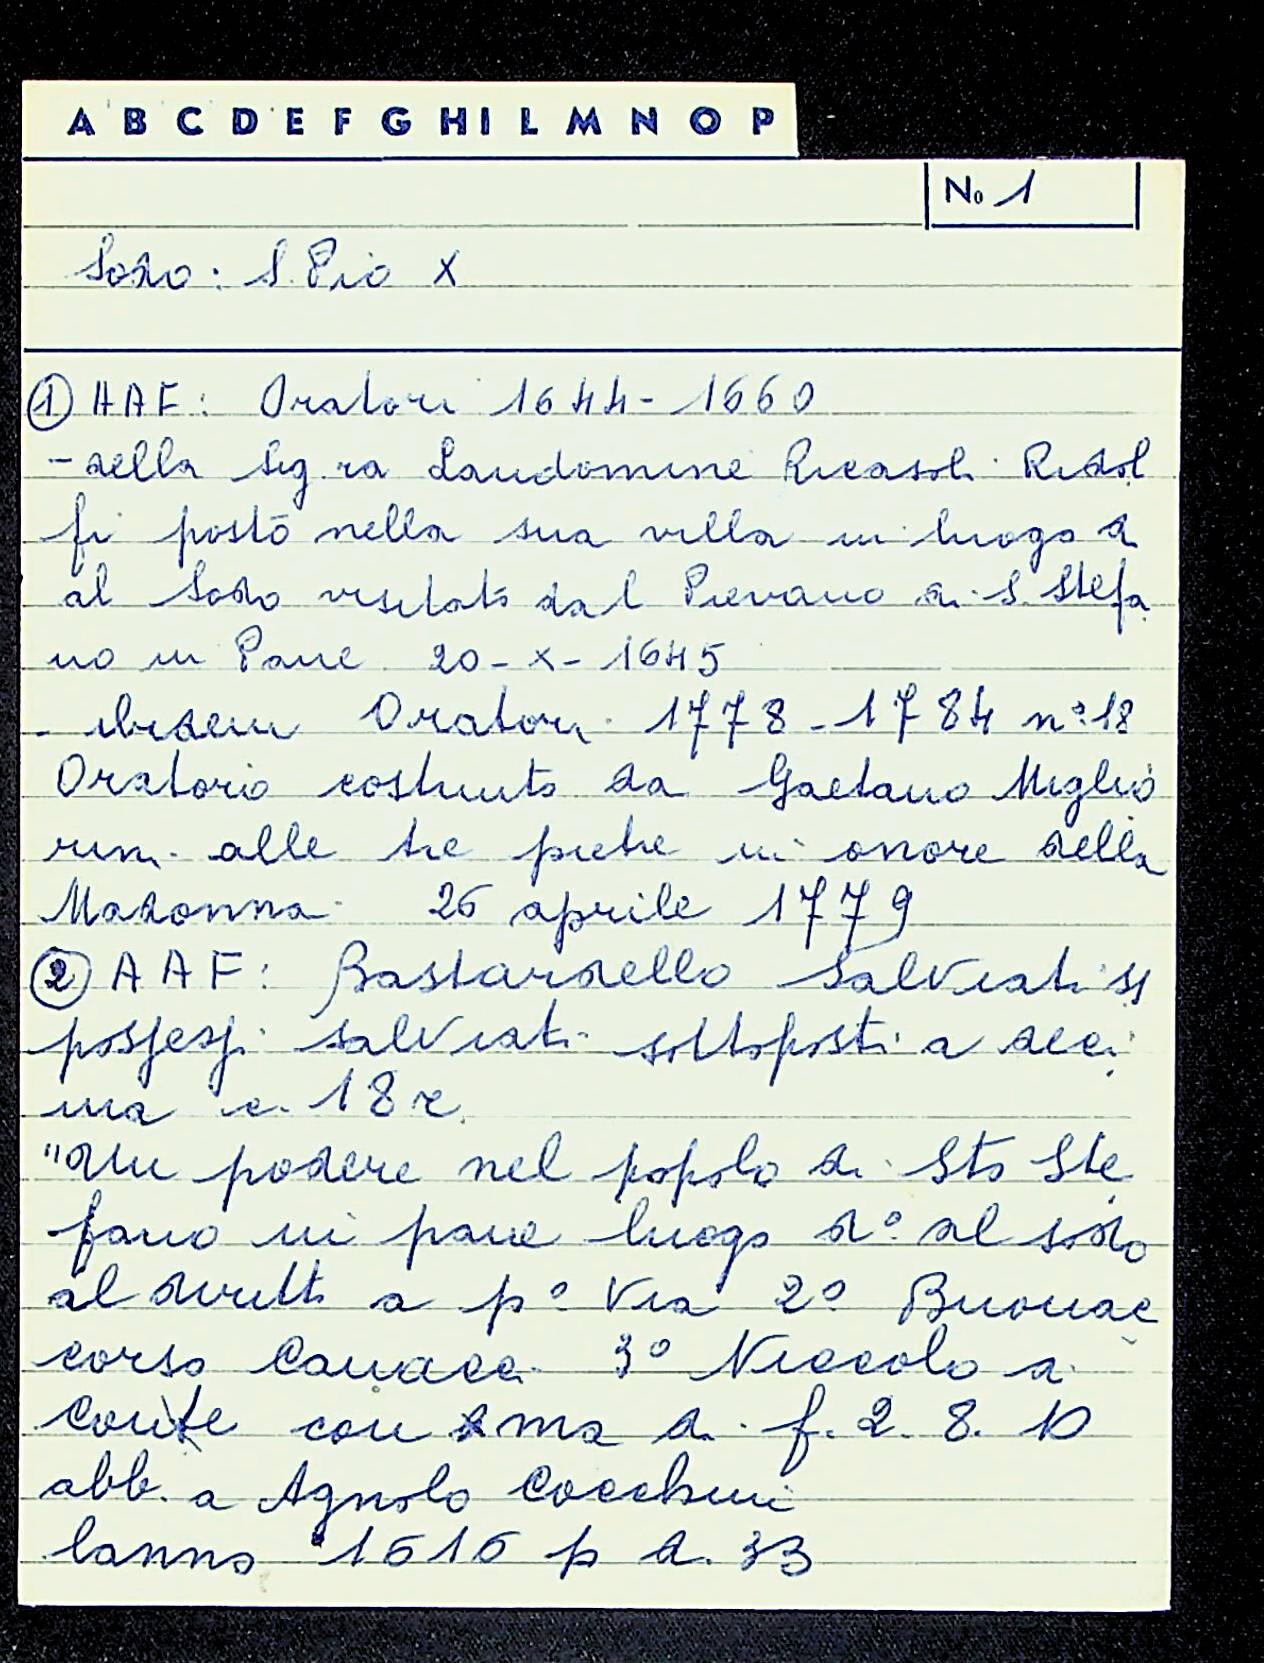 A B C D E F G H I L M N O P
No 1
Sodo: S. Pio X
① AAF: Oratori 1644-1660
- della Sig.ra Laudomine Ricasoli Ridol
fi posto nella sua villa in luogo d
al Sodo visitato dal Pievano di S. Stefa
no in Pane 20-X-1645
- ibidem Oratori 1778-1784 n° 18
Oratorio costruito da Gaetano Miglio
rini alle tre pietre in onore della
Madonna 26 aprile 1779
② AAF: Bastardello Salviati
possessi salviati sottoposti a deci
ma c. 18 r.
"Un podere nel popolo di Sto Ste
fano in pane luogo d° al sodo
al diritto a p° Via 2° Buonac
corso Canacci 3° Niccolo a
Conte con ma di f. 2. 8. 10
abb. a Agnolo Cocchini
lanno 1616 p d. 33